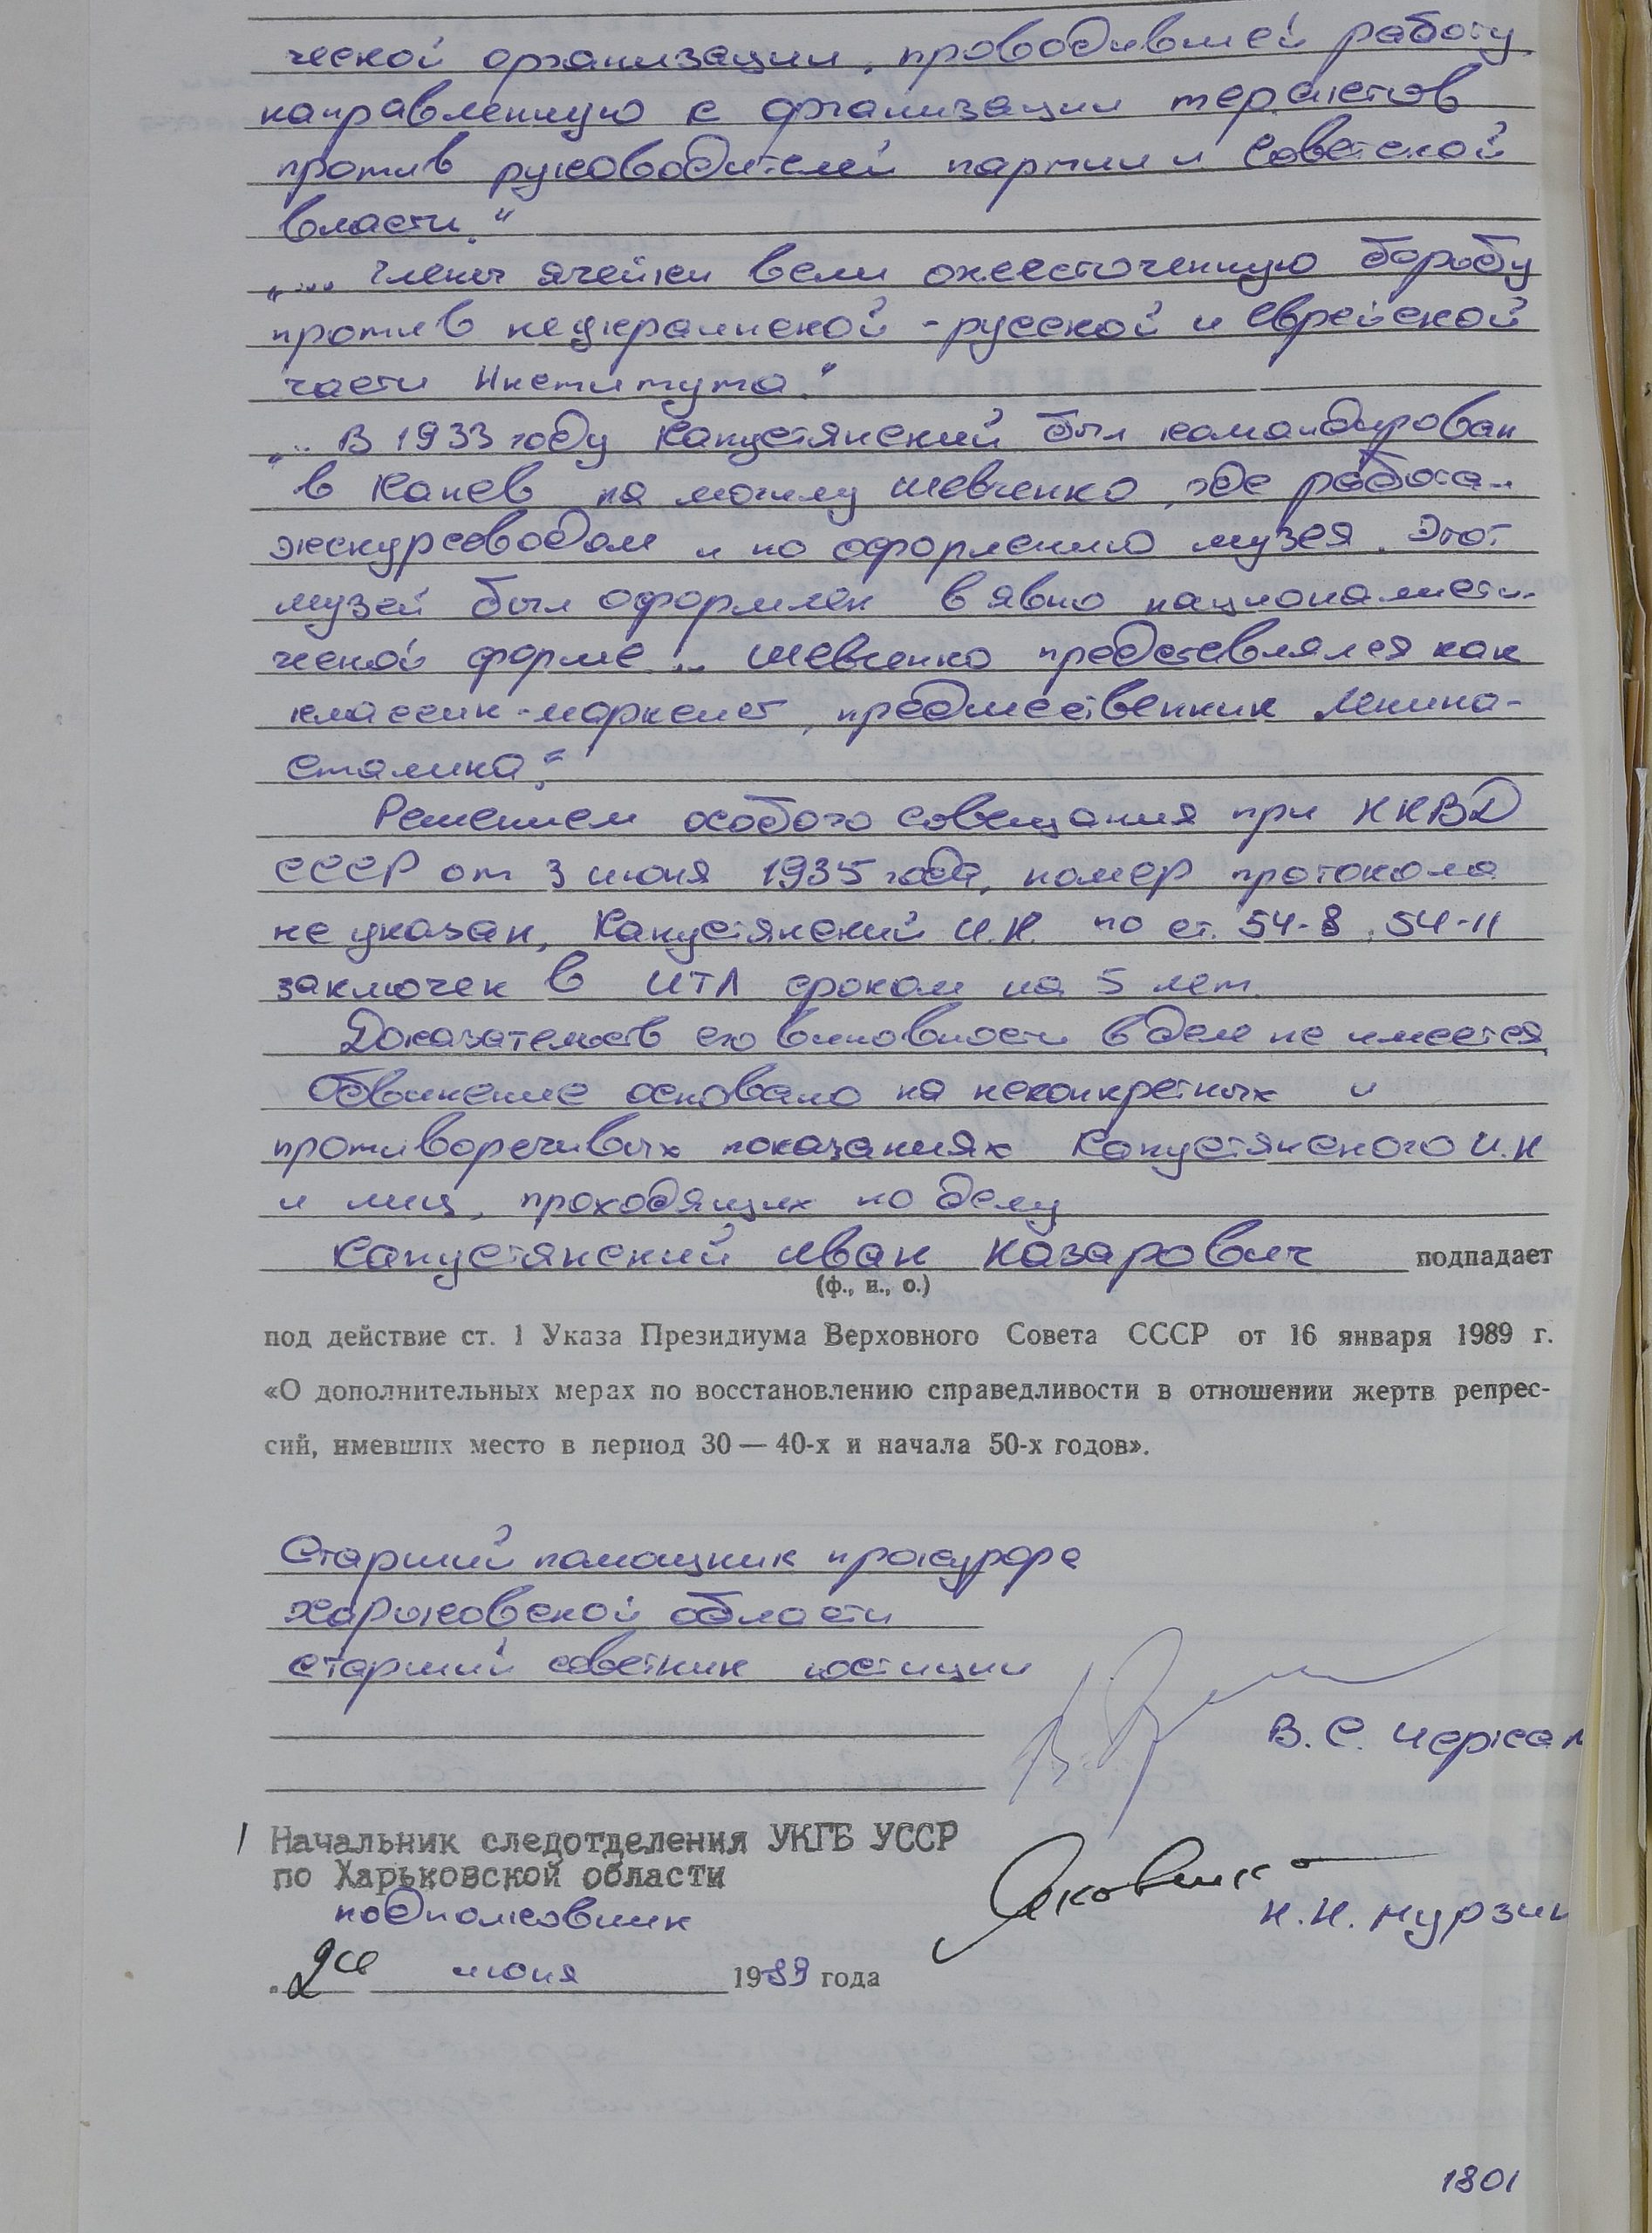 ческой организации, проводившей работу,
направленную к организации терактов
против руководителей партии и Советской
власти."
"... члены ячейки вели ожесточенную борьбу
против неукраинской - русской и еврейской
части Института."
"... В 1933 году Капустянский был командирован
в Канев на могилу Шевченко, где работал
экскурсоводом и по оформлению музея. Этот
музей был оформлен в явно националисти-
ческой форме... Шевченко представлялся как
классик-марксист, предшественник Ленина-
Сталина."
Решением особого совещания при НКВД
СССР от 3 июня 1935 года, номер протокола
не указан, Капустянский И.Н. по ст. 54-8, 54-11
заключен в ИТЛ сроком на 5 лет.
Доказательств его виновности в деле не имеется.
Обвинение основано на неконкретных и
противоречивых показаниях Капустянского И.Н
и лиц, проходящих по делу
Капустянский Иван Назарович подпадает
(ф., и., о.)
под действие ст. 1 Указа Президиума Верховного Совета СССР от 16 января 1989 г.
«О дополнительных мерах по восстановлению справедливости в отношении жертв репрес-
сий, имевших место в период 30 — 40-х и начала 50-х годов».
Старший помощник прокурора
Харьковской области
старший советник юстиции
В. С. Черка
Начальник следотделения УКГБ УССР
по Харьковской области
подполковник
Н. Н. Мурзин
июня 1989 года
1801